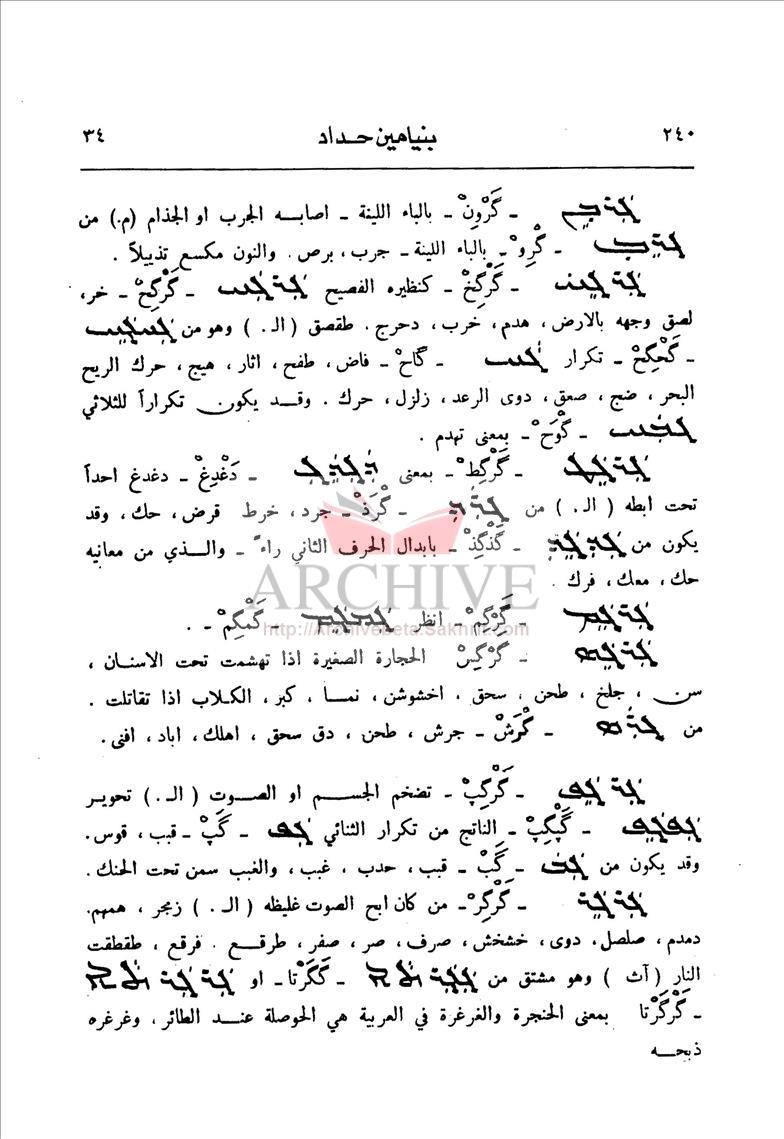 ٢٤٠ بنيامين حداد ٣٤
ܓܪܒܢ ـ گَرْوِنْ ـ بالباء اللينة ـ اصابه الجرب او الجذام (م.) من
ܓܪܒ ـ گْرِوْ ـ بالباء اللينة ـ جرب، برص. والنون مكسع تذييلاً .
ܓܪܓܚ ـ گَرْگِخْ ـ كنظيره الفصيح ܓܪܓܚ ـ گَرْگَحْ ـ خر،
لصق وجهه بالارض، هدم، خرب، دحرج. طقصق (الـ.) وهو من ܓܚܓܚ
ـ گَحْگِحْ ـ تكرار ܓܚ ـ گاحْ ـ فاض، طفح، اثار، هيج، حرك الريح
البحر، ضج، صعق، دوى الرعد، زلزل، حرك . وقد يكون تكراراً للثلاثي
ـ گْوَحْ ـ بمعنى تهدم .
ܓܪܓܛ ـ گَرْگِطْ ـ بمعنى ܕܓܕܓ ـ دَغْدِغْ ـ دغدغ احداً
تحت ابطه (الـ.) من ܓܪܕ ـ گْرَذْ ـ جرد، خرط قرض، حك، وقد
يكون من ܓܕܓܕ ـ گَذْگِذْ ـ بابدال الحرف الثاني راءً ـ والذي من معانيه
حك، معك، فرك .
ARCHIVE
ܓܪܓܡ ـ گَرْگِمْ ـ انظر ܓܡܓܡ ـ گَمْگِمْ ـ .
http://Archivebeta.Sakhrit.com
ܓܪܓܣ ـ گَرْگِسْ الحجارة الصغيرة اذا تهشمت تحت الاسنان ،
سن ، جلخ ، طحن ، سحق ، اخشوشن ، نما ، كبر ، الكلاب اذا تقاتلت .
من ܓܪܣ ـ گْرَسْ ـ جرش ، طحن ، دق سحق ، اهلك، اباد ، افنى.
ܓܪܓܦ ـ گَرْگِپْ ـ تضخم الجسم او الصوت (الـ.) تحوير
ܓܦܓܦ ـ گَپْگِپْ ـ الناتج من تكرار الثنائي ܓܦ ـ گَپْ ـ قبب، قوس.
وقد يكون من ܓܒ ـ گَبْ ـ قبب، حدب ، غبب، والغبب سمن تحت الحنك.
ܓܪܓܪ ـ گَرْگِرْ ـ من كان ابح الصوت غليظه (الـ.) زمجر ، همهم.
دمدم، صلصل، دوى ، خشخش ، صرف ، صر ، صفر ، طرقع . فرقع ، طقطقت
النار (آث) وهو مشتق من ܓܓܪܬܐ ـ گَگَرْتا ـ او ܓܪܓܪܬܐ
ـ گَرْگَرْتا بمعنى الحنجرة والغرغرة في العربية هي الحوصلة عند الطائر ، وغرغره
ذبحه